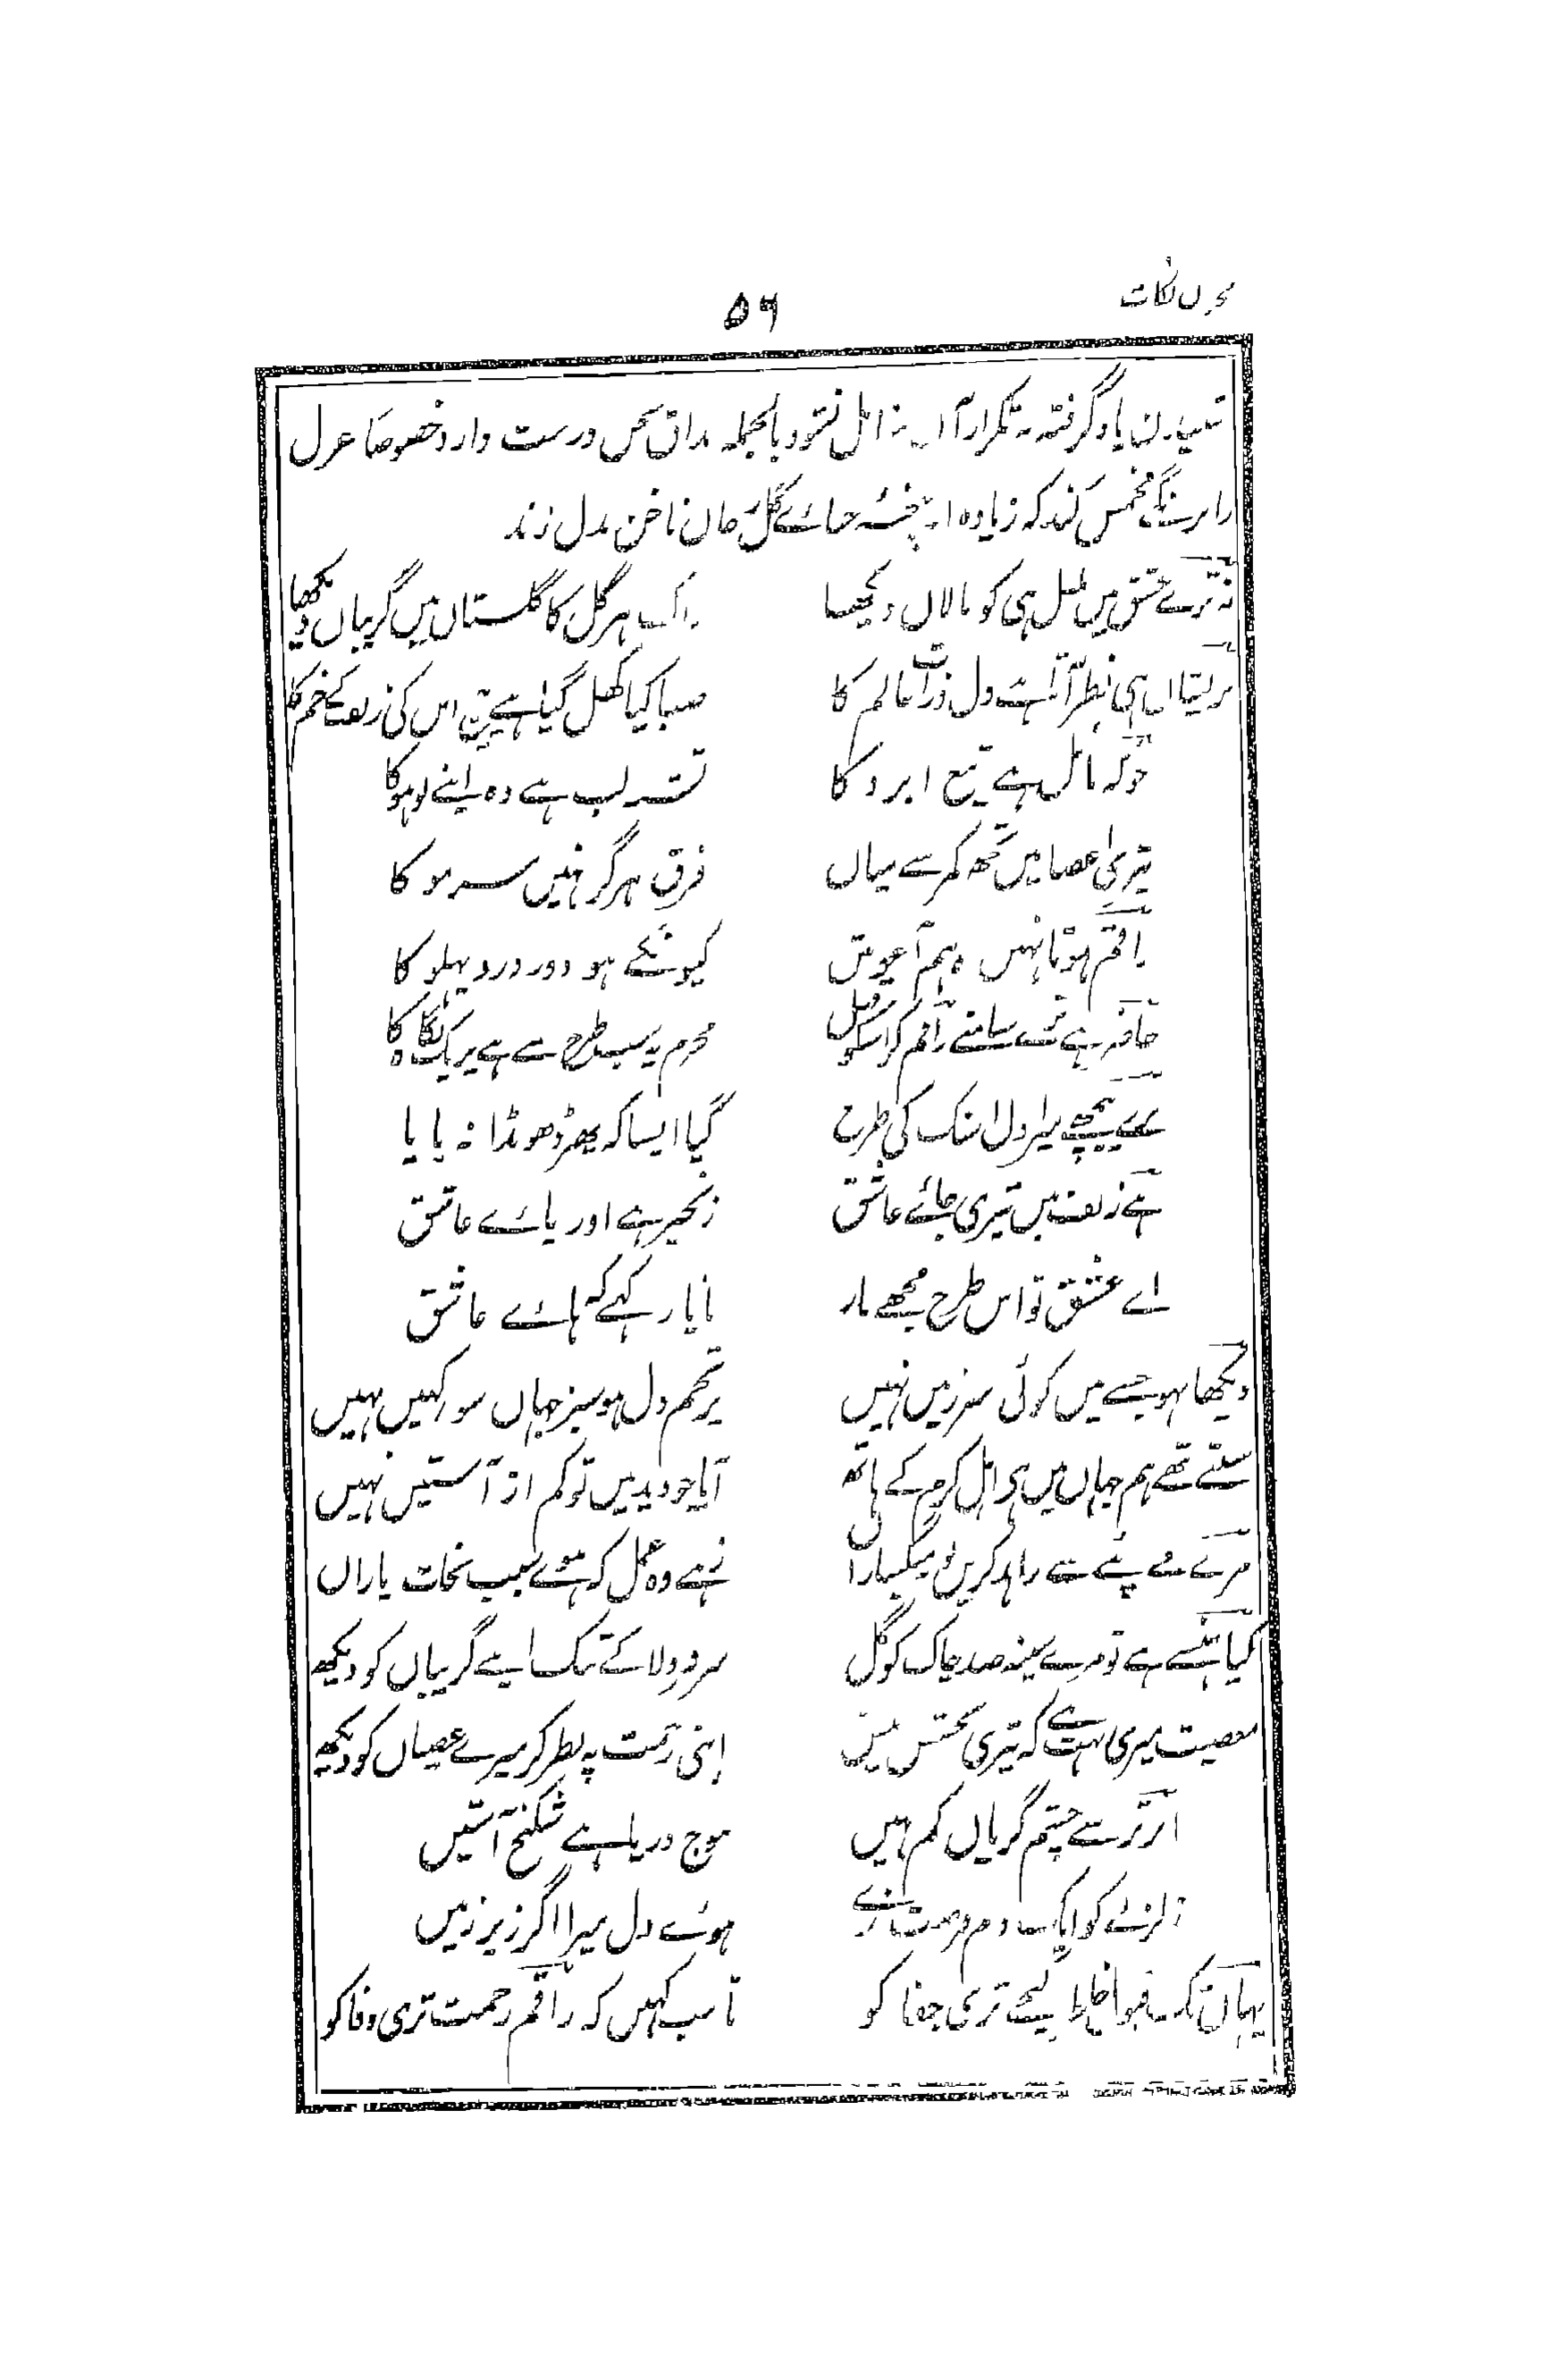 مخزن نکات
۵۶
شنیدن یاد گرفتہ تکرار آں نشود بالجملہ مذاق سخن درست دارد خصوصاً غزل
را برنگے مخمس کند کہ زیادہ از پنجۂ گل ناخن بدل زند
نہ ترے عشق میں بلبل ہی کو نالاں دیکھا ہر گل کا گلستاں میں گریباں دیکھا
پریشاں ہی نظر آتا ہے دل ذرات عالم کا صبا کیا کھل گیا ہے پیچ اس کی زلف کے خم کا
جو کہ مائل ہے تیغ ابرو کا تشنہ لب ہے وہ اپنے لوہو کا
تیری اعضا میں تجھ کمر سے میاں فرق ہرگز نہیں سر مو کا
راقم ہوتا نہیں وہ ہم آغوش کیونکے ہو دور درد پہلو کا
حاضر ہے ترے سامنے راقم کر اسکو قتل مجرم یہ سب طرح سے ہے پر یک نگاہ کا
پیچھے میرا دل اشک کی طرح گیا ایسا کہ پھر ڈھونڈا نہ پایا
ہے زلف میں تیری جائے عاشق زنجیر ہے اور پائے عاشق
اے عشق تو اس طرح مجھے مار تا یار کہے کہ ہائے عاشق
دیکھا ہو جسے میں کوئی سرزمیں نہیں پر تخم دل ہو سبز جہاں سو کہیں نہیں
سنتے تھے ہم جہاں میں ہی اہل کرم کے ہاتھ آیا جو دید میں تو کم از آستیں نہیں
مرے مے پئے سے زاہد زہے وہ عمل کہ ہوئے سبب نجات یاراں
کیا ہنسے ہے تو مرے سینہ صد چاک کو گل سر فرو لا کے تک اپنے گریباں کو دیکھ
معصیت میری بہت ہے کہ تیری بخشش اپنی رحمت پہ نظر کر میرے عصیاں کو دیکھ
ابر تر سے چشم گریاں کم نہیں موج دریا ہے شکنج آستیں
زلزلے کو ایک دم فرصت ہوئے دل میرا اگر زیر زمیں
یہاں تک تری جفا کو تا سب کہیں کہ راقم رحمت تری وفا کو